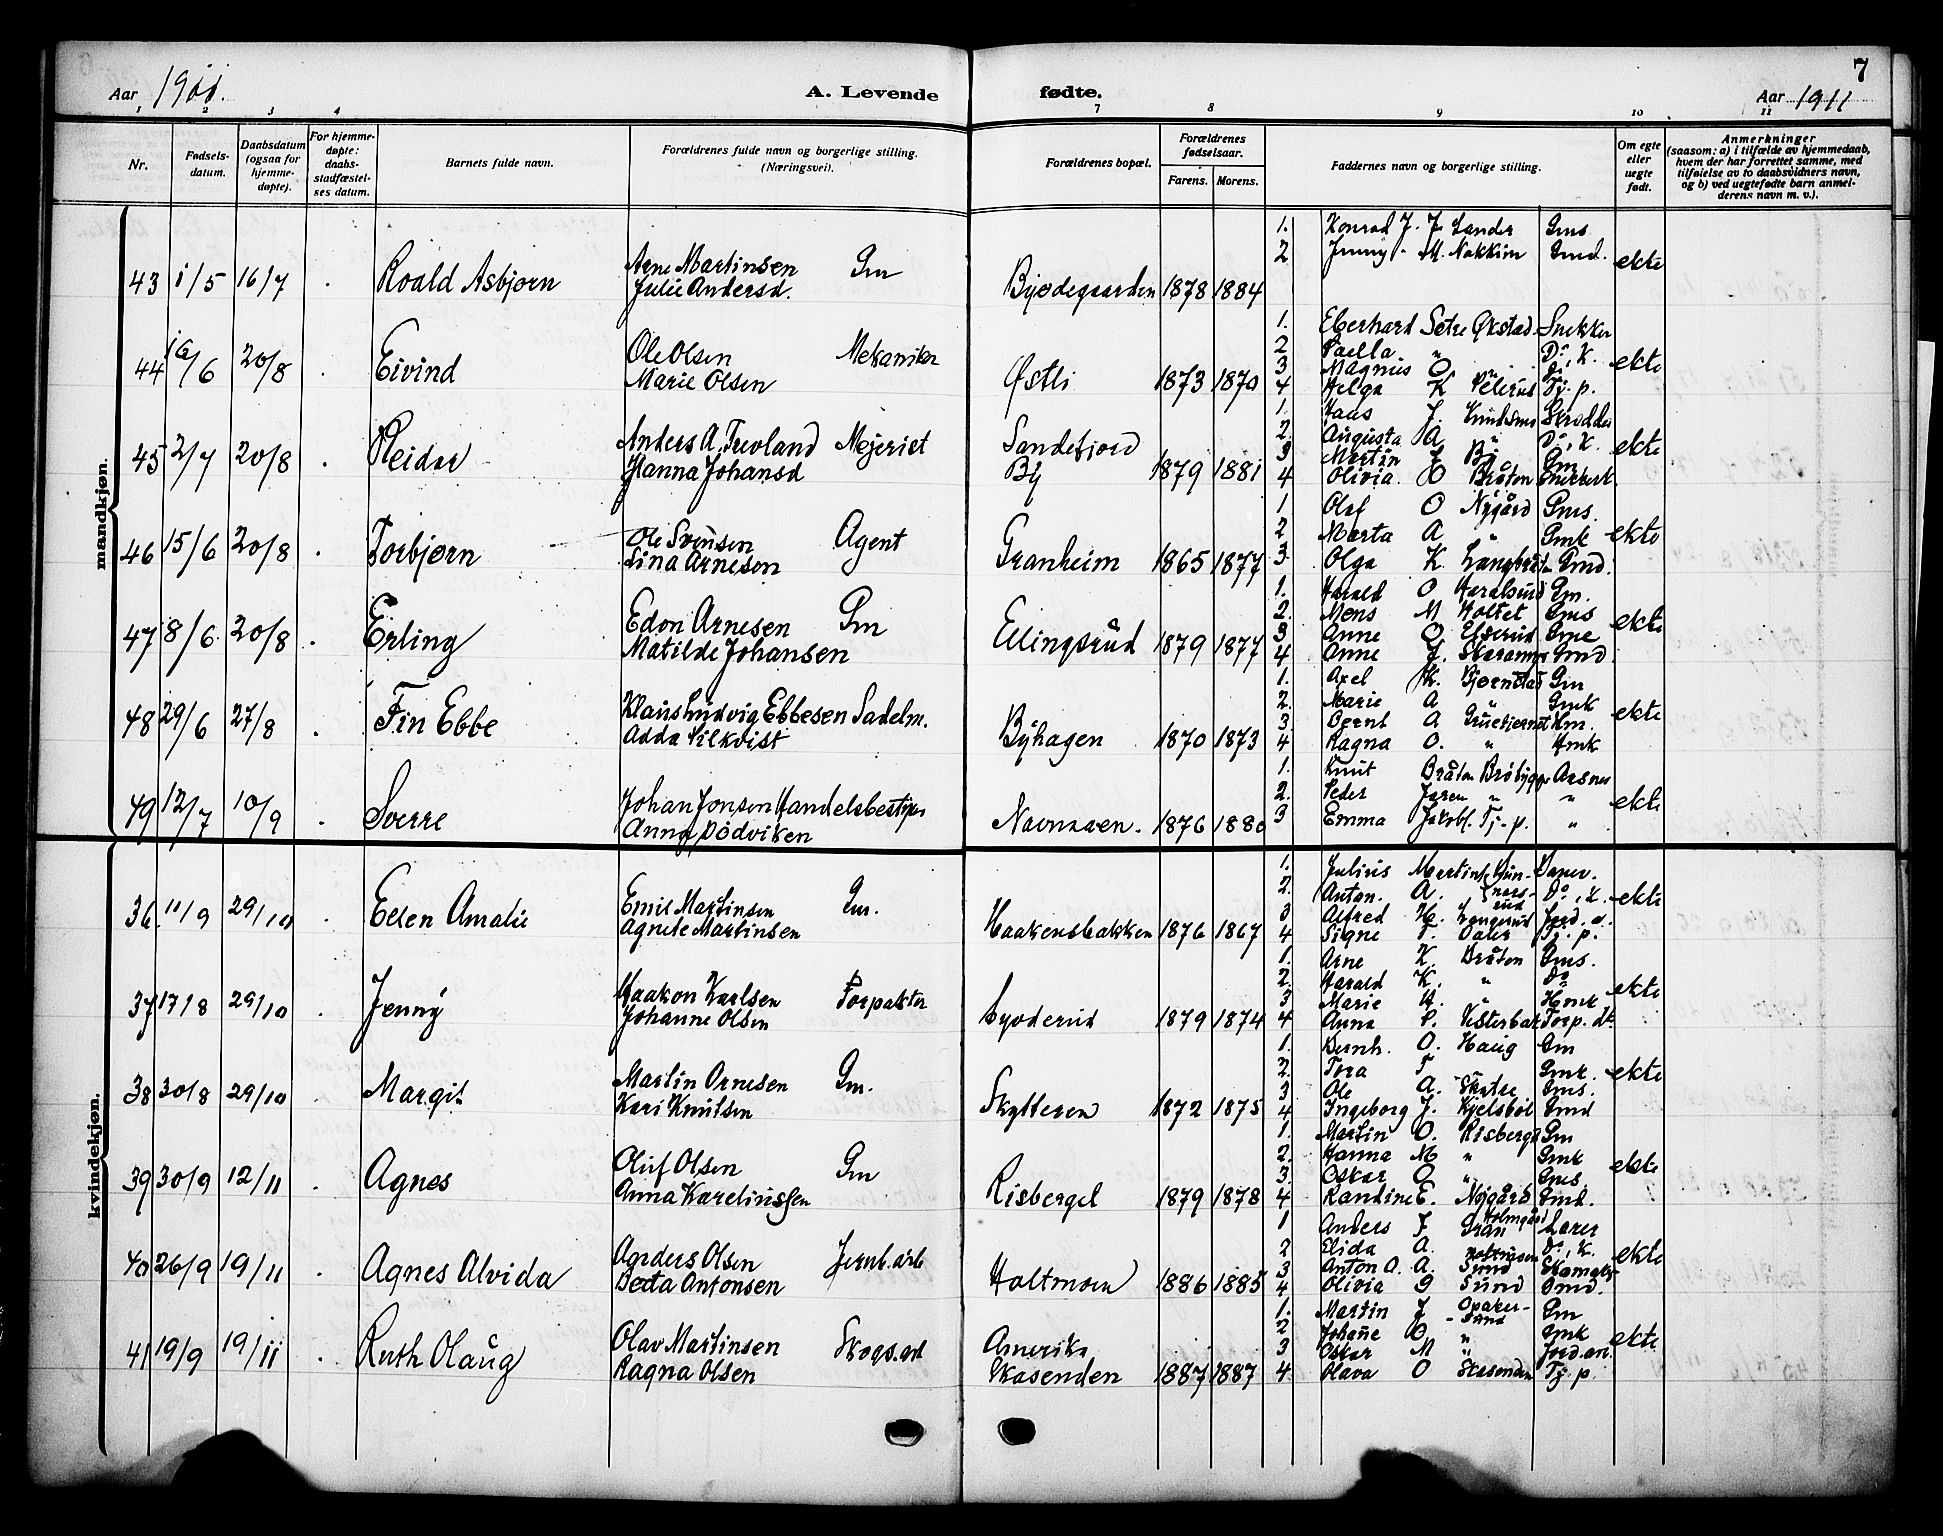 7
Aar 1911.
A. Levende fødte.
Aar 1911
1 2 3 4 7 8 9 10 11
Nr.
Fødsels-datum.
Daabsdatum (ogsaa for hjemme-døpte).
For hjemme-døpte: daabs-stadfæstel-ses datum.
Barnets fulde navn.
Forældrenes fulde navn og borgerlige stilling. (Næringsvei).
Forældrenes bopæl.
Forældrenes fødselsaar.
Farens. Morens.
Faddernes navn og borgerlige stilling.
Om egte eller uegte født.
Anmerkninger (saasom: a) i tilfælde av hjemmedaab, hvem der har forrettet samme, med tilføielse av to daabsvidners navn, og b) ved uegtefødte barn anmel-derens navn m. v.).
mandkjøn.
43 1/5 16/7 Roald Asbjørn
Arne Martinsen Gm
Julie Andersd.
Byødegaarden 1878 1884
1. Konrad J. J. Sander Gms
2 Jenny M. Nakkim Gmd.
ekte
44 16/6 20/8 Eivind
Ole Olsen Mekaniker
Marie Olsen
Østli 1873 1870
1. Eberhard Sætre Økstad Snekker
2 " Do, K.
3 Magnus O. " Do
4 Helga K. Tj. p.
ekte
45 2/7 20/8 Reidar
Anders A. Trevland Mejerist
Hanna Johansd
Sandefjord By 1879 1881
1. Haas J. Knudsen Skrædder
2. Augusta A " Do, K.
3 Martin J. By Gm
4 Olivia O Bråten
ekte
46 15/6 20/8 Torbjørn
Ole Svensen Agent
Lina Arnesen
Granheim 1865 1877
1 Olaf O Nygård Gms.
2 Marta A " Gmk
3 Olga K. Gmd.
ekte
47 8/6 20/8 Erling
Edon Arnesen Gm
Matilde Johansen
Ellingsrud 1879 1877
1. Harald O Gm.
2. Mens M Holtet Gms
3 Anne O. Elserud Gme
4 Anne J. Gmd.
ekte
48 29/6 27/8 Fin Ebbe
Klaus Ludvig Ebbesen Sadelm.
Adda Silkvist
Byhagen 1870 1873
1. Axel K. Bjørnstad Gm
2. Marie A " Gmk
3. Bernt A Gruetjernet Hm.
4 Ragna O. " Hmk
ekte
49 12/7 10/9 Sverre
Johan Jonsen Handelsbestyrer
Anna Dødviken
1876 1880
1. Knut Bråten Brøbygge Aasnes
2. Peder Jaren " "
3 Emma Jakobs. Tj. p. "
ekte
kvindekjøn.
36. 11/9 29/10 Ellen Amalie
Emil Martinsen Gm.
Agnete Martinsen
Haakensbakken 1876 1867
1. Julius Martins
2. Anton. A. Do, K.
3 Alfred H. Langerud Jord. a.
4 Signe Tj. p.
ekte
37 17/8 29/10 Jenny
Haakon Karlsen Forpakter
Johanne Olsen
Lyoderud 1879 1874
1. Arne K. Bråten Gms.
2. Harald K. " Do
3 Marie H. " Hmk
4 Anna P. Vesterbak Torp. dt.
ekte
38 30/8 29/10 Margit
Martin Ornesen Gm.
Kari Knutsen
Skytteren 1872 1875
1. Bernh. O. Haug Gm
2. Tora T Gmk.
3 Ole A. Skatre Gms.
4 Ingeborg J. Kjelsbøl Gmd
ekte
39 30/9 12/11 Agnes
Oluf Olsen Gm
Anna Karelinussen
Risberget 1879 1878
1. Martin O. Risberget Gm
2. Hanna M " Gmk
3. Oskar O " Gms.
4 Randine E. Nygård Gmd.
ekte
40 26/9 19/11 Agnes Alvida
Anders Olsen Jernb. arb
Berta Antonsen
Holtmoen 1886 1885
1 Anders J Holmgård Gran Lærer
2 Elida A. Do, K.
3 Anton O. A. Sund Skomaker
4 Olivia G Sund Gmd.
ekte
41 19/9 19/11 Ruth Olaug
Olav Martinsen Skogs.arb
Ragna Olsen
Amerika
Kasenden 1887 1887
1. Martin J Opaker-sund Gm
2 Johane O. " Gmk
3 Oskar M " Jord.arb.
4. Olava O Skasenden Tj. p.
ekte